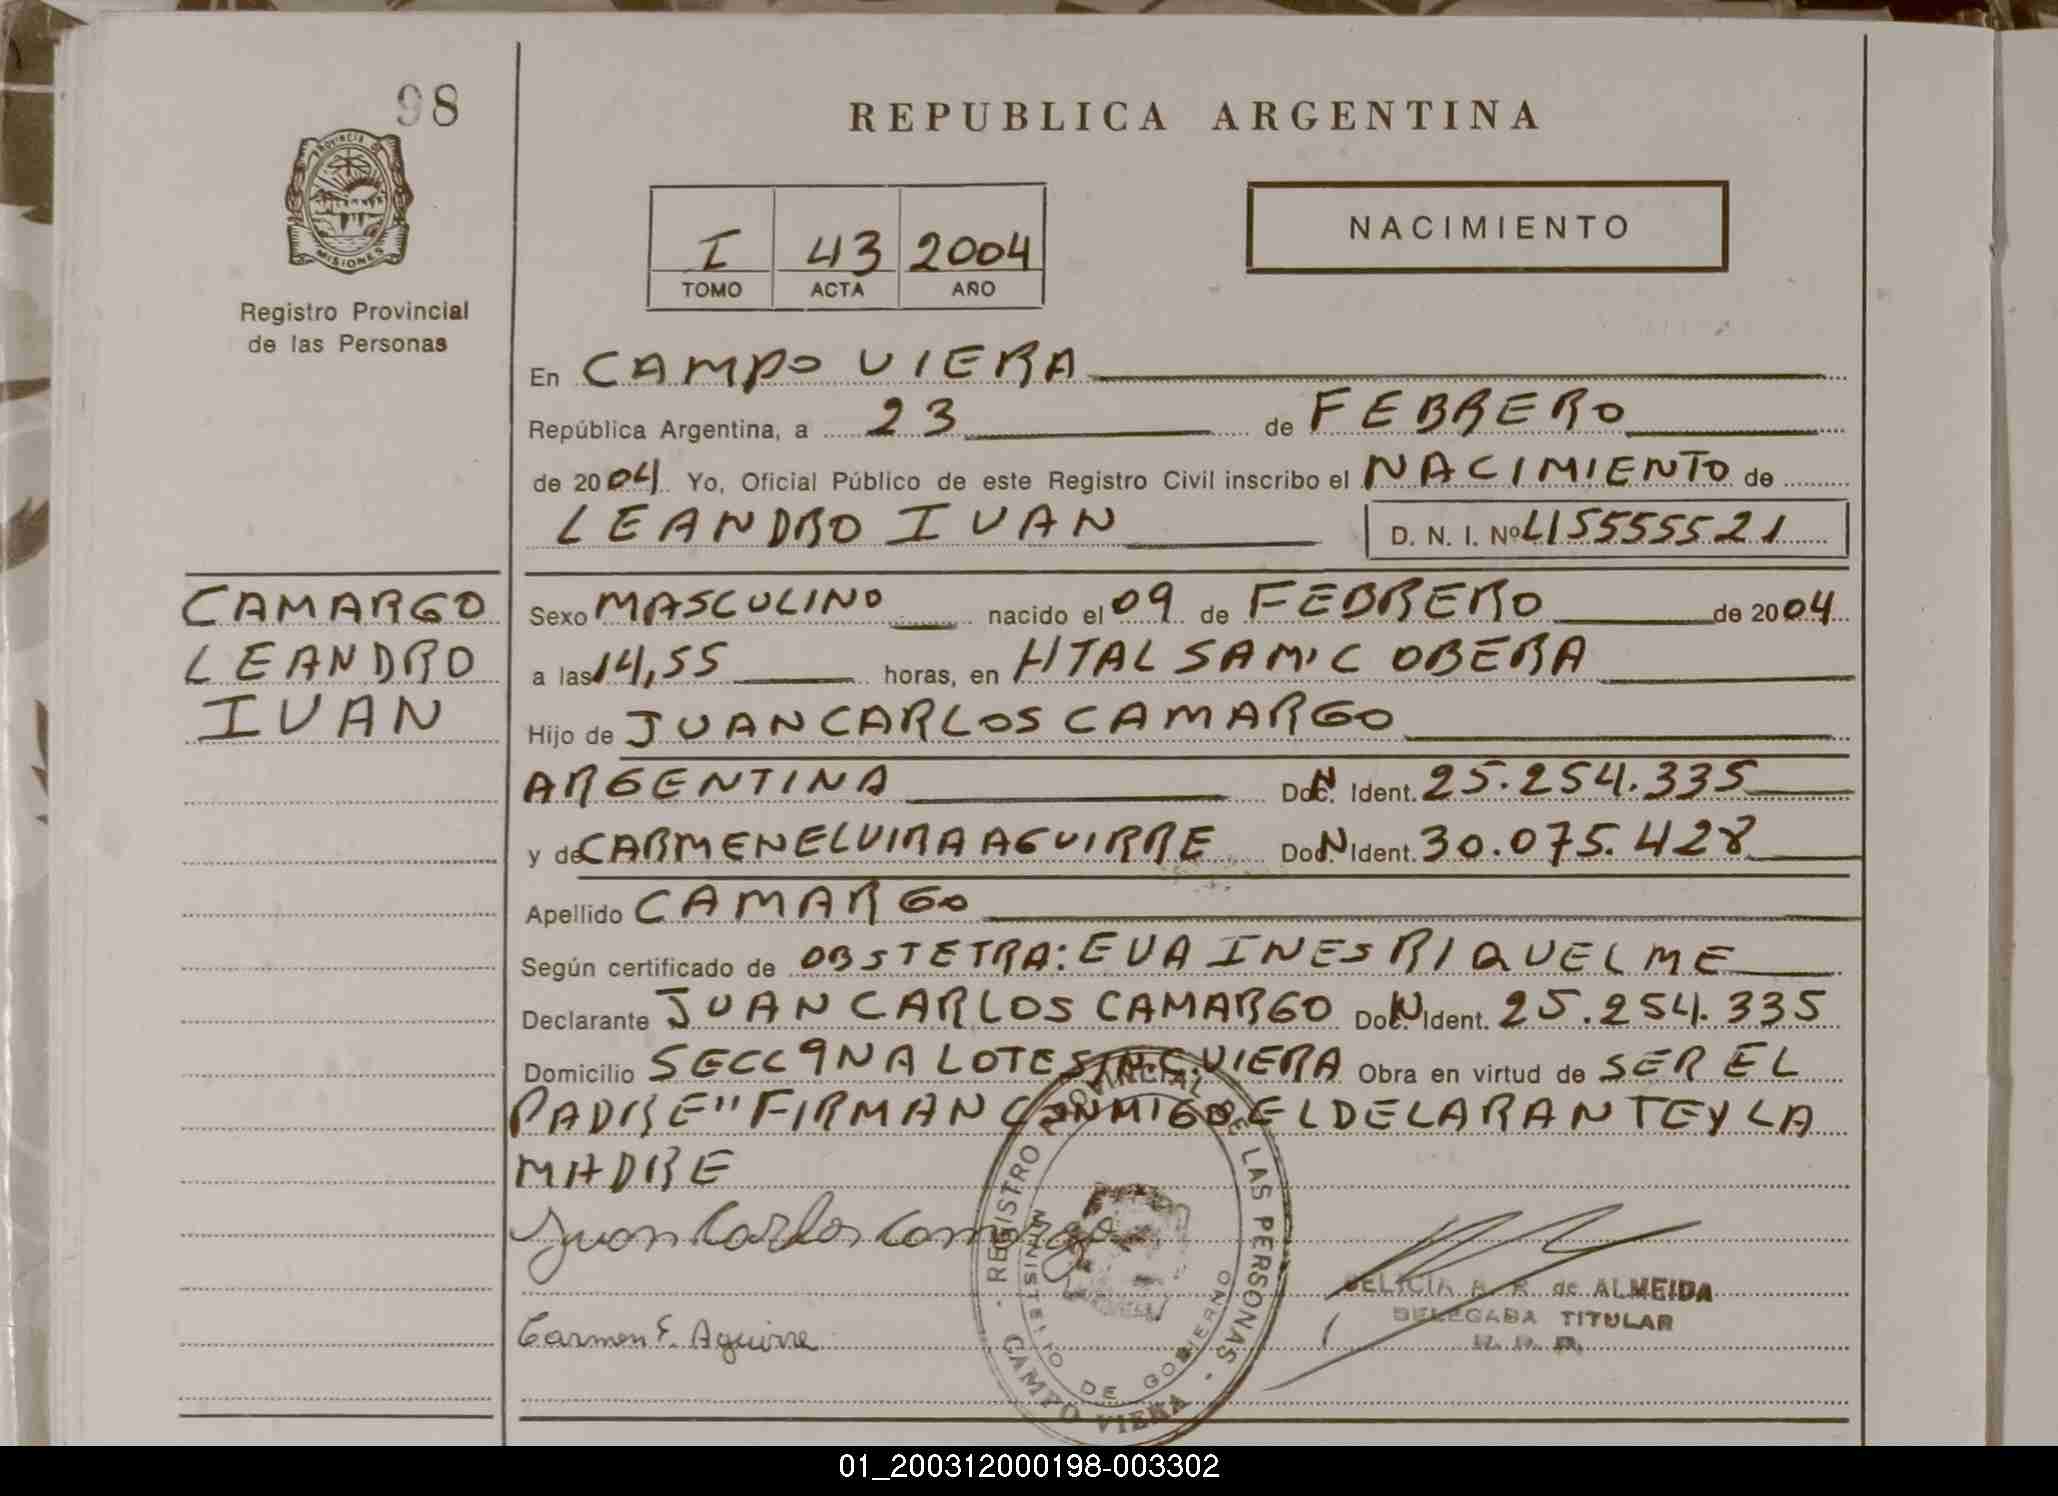 98
PROVINCIA DE
MISIONES
Registro Provincial
de las Personas
REPUBLICA ARGENTINA
I 43 2004
TOMO ACTA AÑO
NACIMIENTO
En CAMPO VIERA
República Argentina, a 23 de FEBRERO
de 2004 Yo, Oficial Público de este Registro Civil inscribo el NACIMIENTO de
LEANDRO IVAN D. N. I. Nº 45555521
CAMARGO
LEANDRO
IVAN
Sexo MASCULINO nacido el 09 de FEBRERO de 2004
a las 14,55 horas, en HTAL SAMIC OBERA
Hijo de JUAN CARLOS CAMARGO
ARGENTINA Doc. N Ident. 25.254.335
y de CARMEN ELVIRA AGUIRRE Doc. N Ident. 30.075.428
Apellido CAMARGO
Según certificado de OBSTETRA: EVA INES RIQUELME
Declarante JUAN CARLOS CAMARGO Doc. N Ident. 25.254.335
Domicilio SECC 9NA LOTE S/N C. VIERA Obra en virtud de SER EL
PADRE" FIRMAN CONMIGO EL DELARANTE Y LA
MADRE
Juan Carlos Camargo
Carmen E. Aguirre
REGISTRO PROVINCIAL DE LAS PERSONAS
MINISTERIO DE GOBIERNO
CAMPO VIERA
DELICIA A. R. de ALMEIDA
DELEGADA TITULAR
01_200312000198-003302